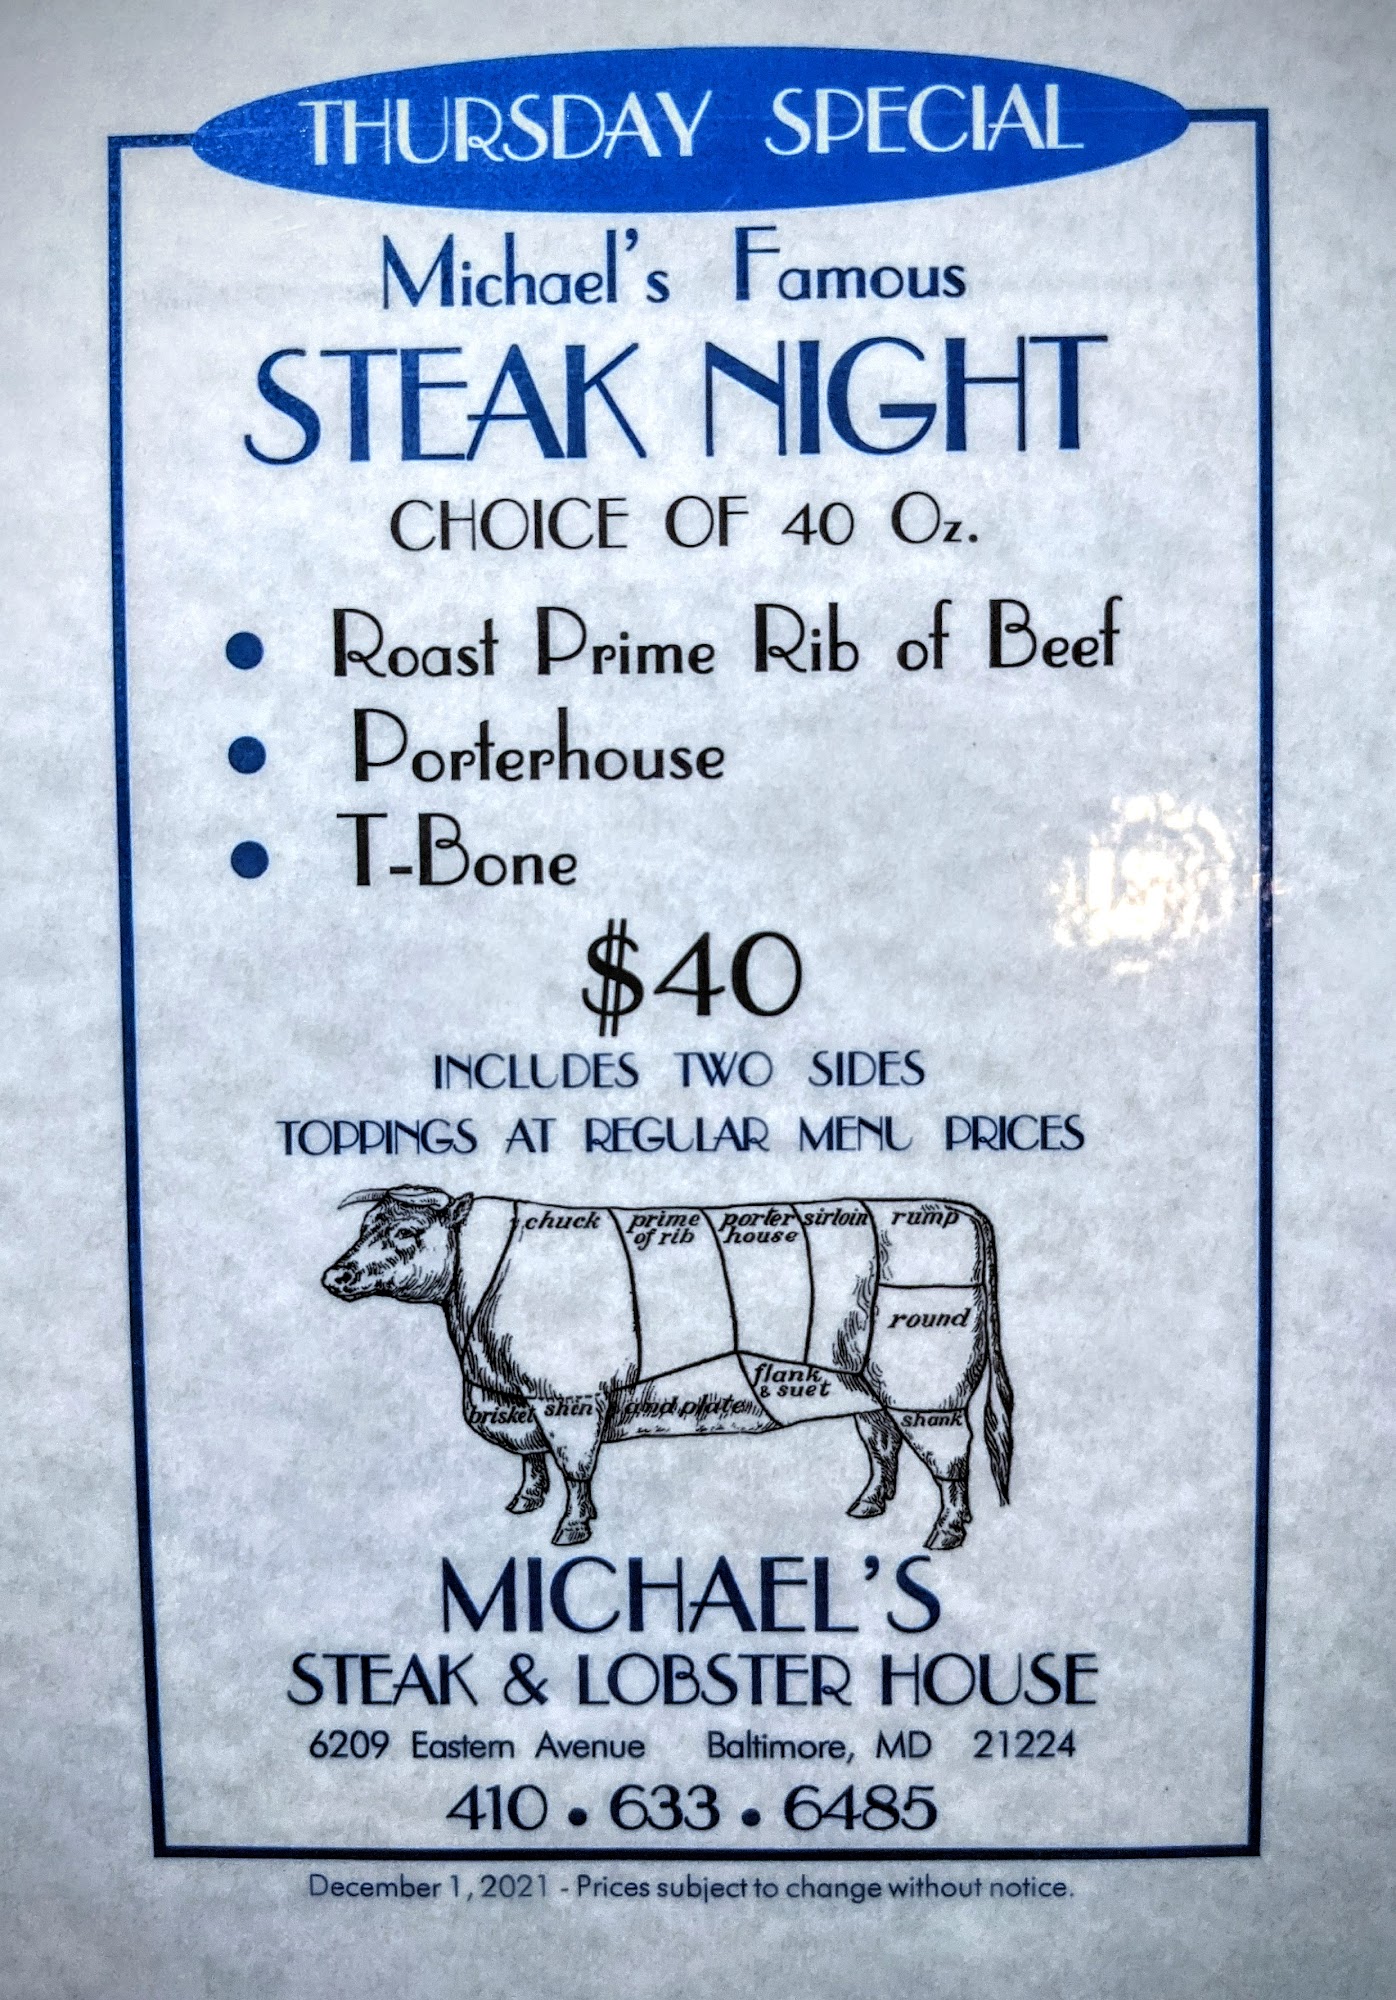 THURSDAY SPECIAL
Michael's Famous
STEAK NIGHT
CHOICE OF 40 Oz.
• Roast Prime Rib of Beef
• Porterhouse
• T-Bone
$40
INCLUDES TWO SIDES
TOPPINGS AT REGULAR MENU PRICES
chuck
prime
of rib
porter
house
sirloin
rump
round
flank
& suet
brisket
shin
and plate
shank
MICHAEL'S
STEAK & LOBSTER HOUSE
6209 Eastern Avenue Baltimore, MD 21224
410 • 633 • 6485
December 1, 2021 - Prices subject to change without notice.